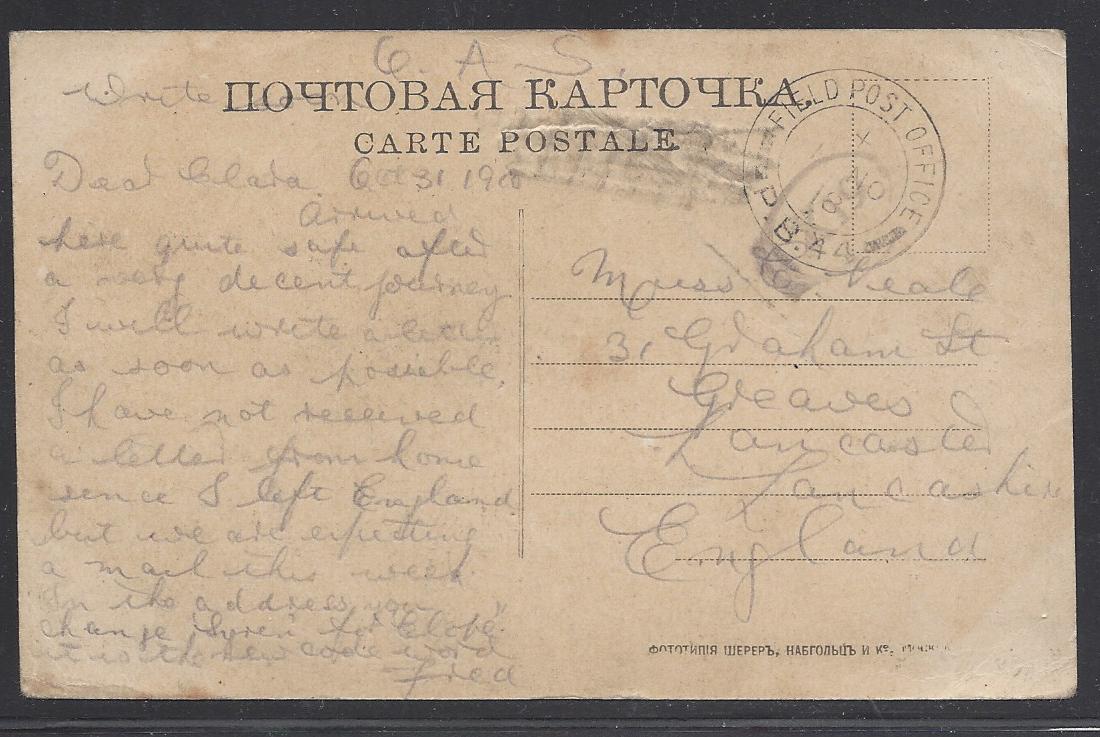 O. A. S.
Write
ПОЧТОВАЯ КАРТОЧКА.
CARTE POSTALE.
FIELD POST OFFICE
P.B.44
Dear Clara. Oct 31 191
Arrived
here quite safe after
a very decent journey
I will write a letter
as soon as possible,
I have not received
a letter from home
since I left England
but we are expecting
a mail this week.
In the address you
change "Syren" for "Elope"
it is the new code word
Fred
Miss Neale
31 Graham St
Greaves
Lancaster
Lancashire
England
ФОТОТИПІЯ ШЕРЕРЪ, НАБГОЛЬЦЪ И Кº.